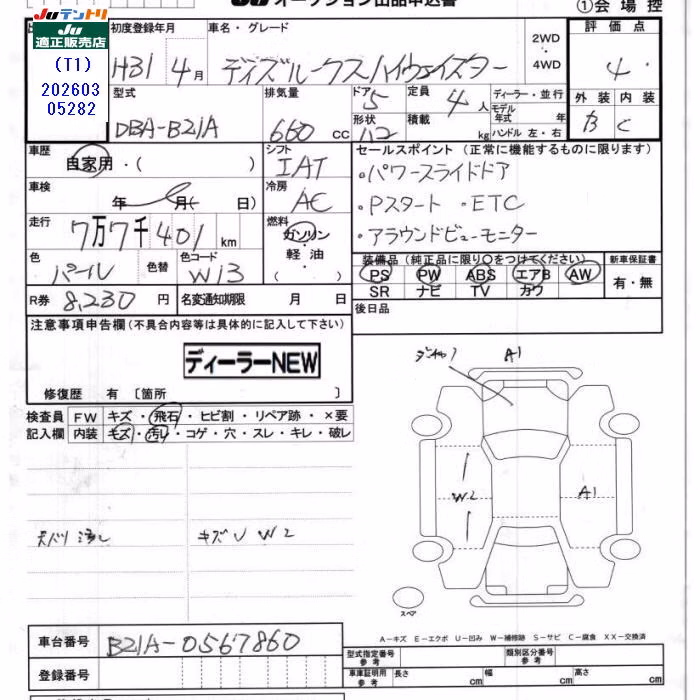 JU オークション出品申込書
①会場控
Juテントリ
JU
適正販売店
(T1)
202603
05282
初度登録年月
車名・グレード
評価点
H31 4月
デイズルークスハイウェイスター
2WD
・
4WD
4
型式
排気量
ドア 5
定員 4 人
ディーラー・並行
外装 内装
モデル年式 年
DBA-B21A
660 cc
形状
積載 kg
ハンドル 左・右
B C
車歴
自家用・( )
シフト
IAT
セールスポイント (正常に機能するものに限ります)
・パワースライドドア
車検
年 月( 日)
冷房
AC
・Pスタート ・ETC
走行
7万7千401 km
燃料
ガソリン
・
軽油
( )
・アラウンドビューモニター
色
パール
色替
色コード
W13
装備品 (純正品に限り○をつけてください)
新車保証書
PS PW ABS エアB AW
SR ナビ TV カワ
有・無
R券 8,230 円
名変通知期限 月 日
後日品
注意事項申告欄(不具合内容等は具体的に記入して下さい)
ディーラーNEW
修復歴 有 〔箇所 〕
A1
検査員
記入欄
FW キズ・飛石・ヒビ割・リペア跡・×要
内装 キズ・汚れ・コゲ・穴・スレ・キレ・破レ
W2
A1
キズU W2
スペア
A－キズ E－エクボ U－凹み W－補修跡 S－サビ C－腐食 XX－交換済
車台番号 B21A-0567860
型式指定番号
参考
類別区分番号
参考
登録番号
車庫証明用
参考
長さ cm
幅 cm
高さ cm